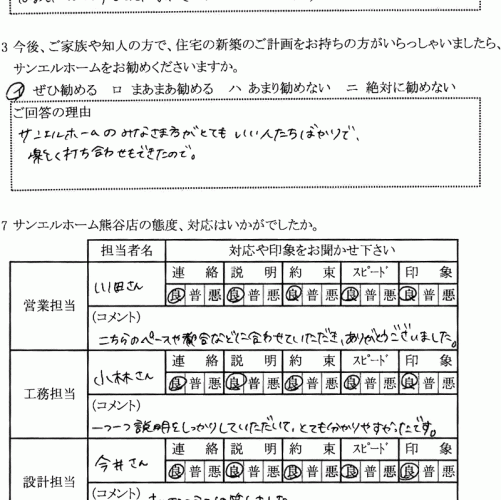 3 今後、ご家族や知人の方で、住宅の新築のご計画をお持ちの方がいらっしゃいましたら、
サンエルホームをお勧めくださいますか。
イ ぜひ勧める ロ まあまあ勧める ハ あまり勧めない ニ 絶対に勧めない
ご回答の理由
サンエルホームのみなさま方がとてもいい人たちばかりで、
楽しく打ち合わせもできたので。
7 サンエルホーム熊谷店の態度、対応はいかがでしたか。
担当者名 対応や印象をお聞かせ下さい
営業担当 川田さん 連絡 説明 約束 スピード 印象
良 普 悪 良 普 悪 良 普 悪 良 普 悪 良 普 悪
(コメント)
こちらのペースや都合などに合わせていただき、ありがとうございました。
工務担当 小林さん 連絡 説明 約束 スピード 印象
良 普 悪 良 普 悪 良 普 悪 良 普 悪 良 普 悪
(コメント)
一つ一つ説明をしっかりしていただいて、とても分かりやすかったです。
設計担当 今井さん 連絡 説明 約束 スピード 印象
良 普 悪 良 普 悪 良 普 悪 良 普 悪 良 普 悪
(コメント)